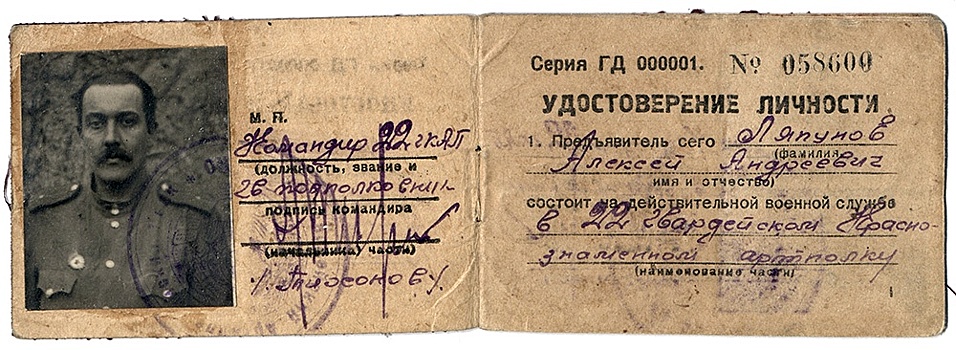 М. П.
Командир 22 ГКАП
(должность, звание и
гв подполковник
подпись командира
(начальника) части)
Серия ГД 000001. № 058600
УДОСТОВЕРЕНИЕ ЛИЧНОСТИ
1. Предъявитель сего Ляпунов
(фамилия,
Алексей Андреевич
имя и отчество)
состоит на действительной военной службе
в 22 Гвардейском Красно-
знаменном артполку
(наименование части)